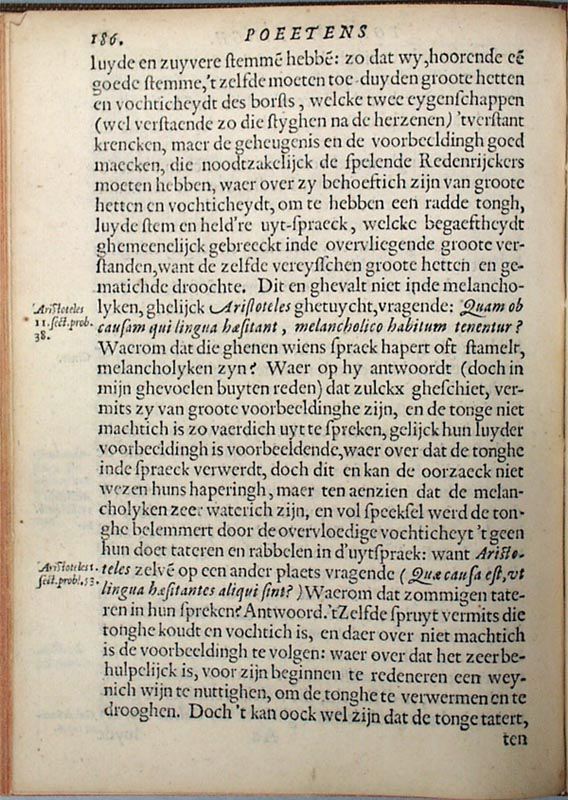 186. POEETENS
luyde en zuyvere stemmē hebbē: zo dat wy, hoorende eē
goede stemme, 't zelfde moeten toe-duyden groote hetten
en vochticheydt des borsts, welcke twee eygenschappen
(wel verstaende zo die styghen na de herzenen) 'tverstant
krencken, maer de geheugenis en de voorbeeldingh goed
maecken, die noodtzakelijck de spelende Redenrijckers
moeten hebben, waer over zy behoeftich zijn van groote
hetten en vochticheydt, om te hebben een radde tongh,
luyde stem en held're uyt-spraeck, welcke begaeftheydt
ghemeenelijck gebreeckt inde overvliegende groote ver-
standen, want de zelfde vereysschen groote hetten en ge-
matichde droochte. Dit en ghevalt niet inde melancho-
'Aristoteles
11. sect. prob.
38.
lyken, ghelijck Aristoteles ghetuycht, vragende: Quam ob
causam qui lingua hæsitant, melancholico habitum tenentur?
Waerom dat die ghenen wiens spraek hapert oft stamelt,
melancholyken zyn? Waer op hy antwoordt (doch in
mijn ghevoelen buyten reden) dat zulckx gheschiet, ver-
mits zy van groote voorbeeldinghe zijn, en de tonge niet
machtich is zo vaerdich uyt te spreken, gelijck hun luyder
voorbeeldingh is voorbeeldende, waer over dat de tonghe
inde spraeck verwerdt, doch dit en kan de oorzaeck niet
wezen huns haperingh, maer ten aenzien dat de melan-
cholyken zeer waterich zijn, en vol speeksel werd de ton-
ghe belemmert door de overvloedige vochticheyt 't geen
hun doet tateren en rabbelen in d'uytspraek: want Aristo-
'Aristoteles 1.
sect. probl. 53.
teles zelvē op een ander plaets vragende (Quæ causa est, vt
lingua hæsitantes aliqui sint?) Waerom dat zommigen tate-
ren in hun spreken? Antwoord. 't Zelfde spruyt vermits die
tonghe koudt en vochtich is, en daer over niet machtich
is de voorbeeldingh te volgen: waer over dat het zeer be-
hulpelijck is, voor zijn beginnen te redeneren een wey-
nich wijn te nuttighen, om de tonghe te verwermen en te
drooghen. Doch 't kan oock wel zijn dat de tonge tatert,
ten